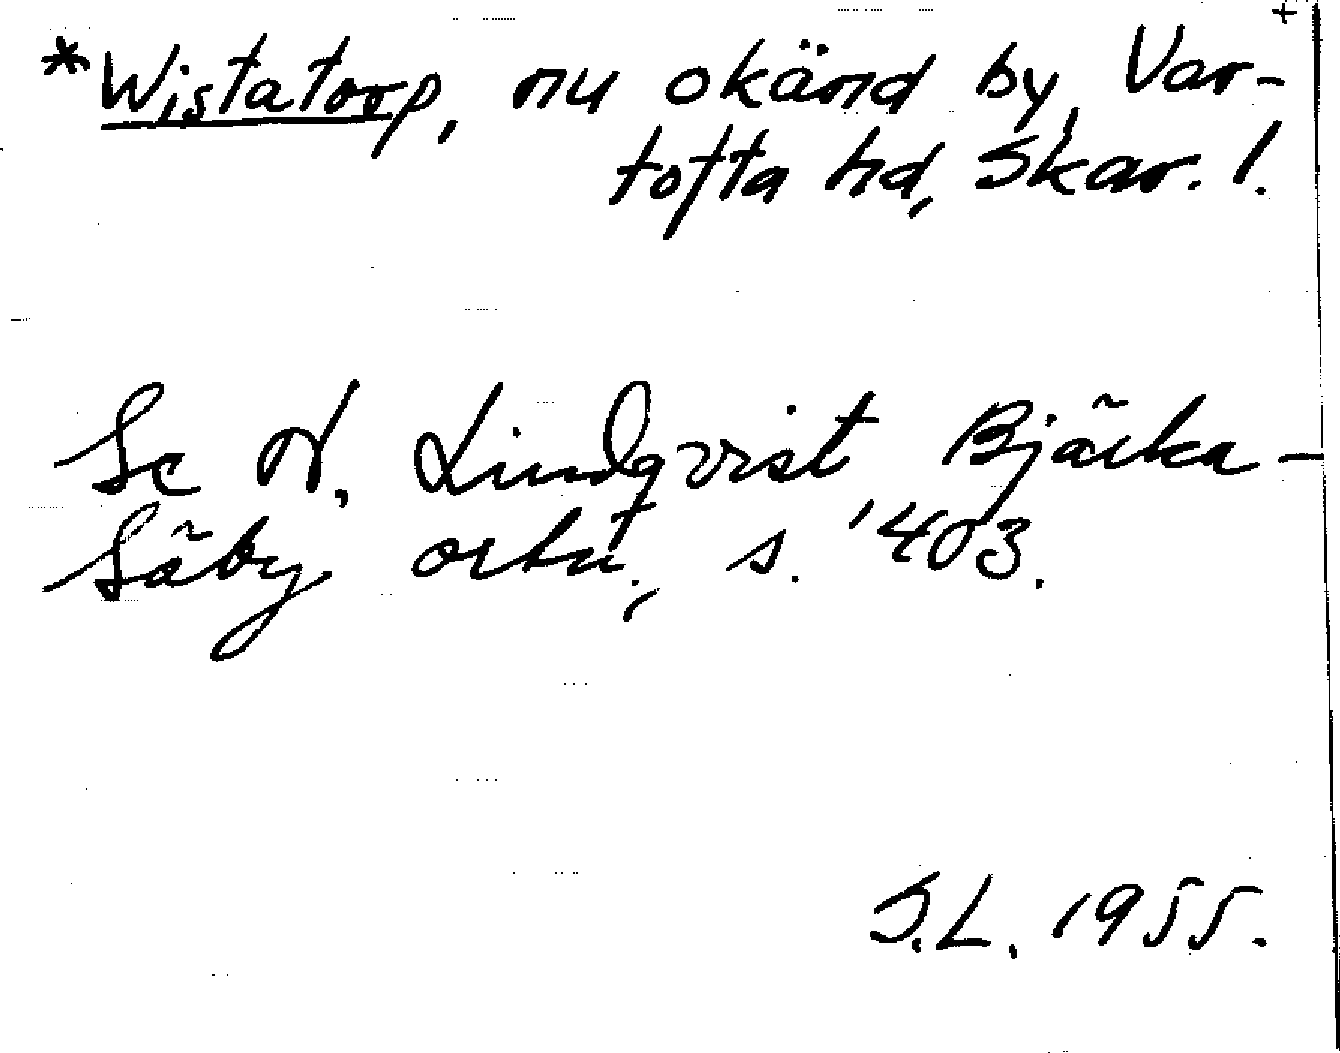 +
*Wistatorp, nu okänd by, Var-
tofta hd, Skar. l.
Se S. Lindqvist Bjärka-
Säby ortn., s. 403.
S.L. 1955.